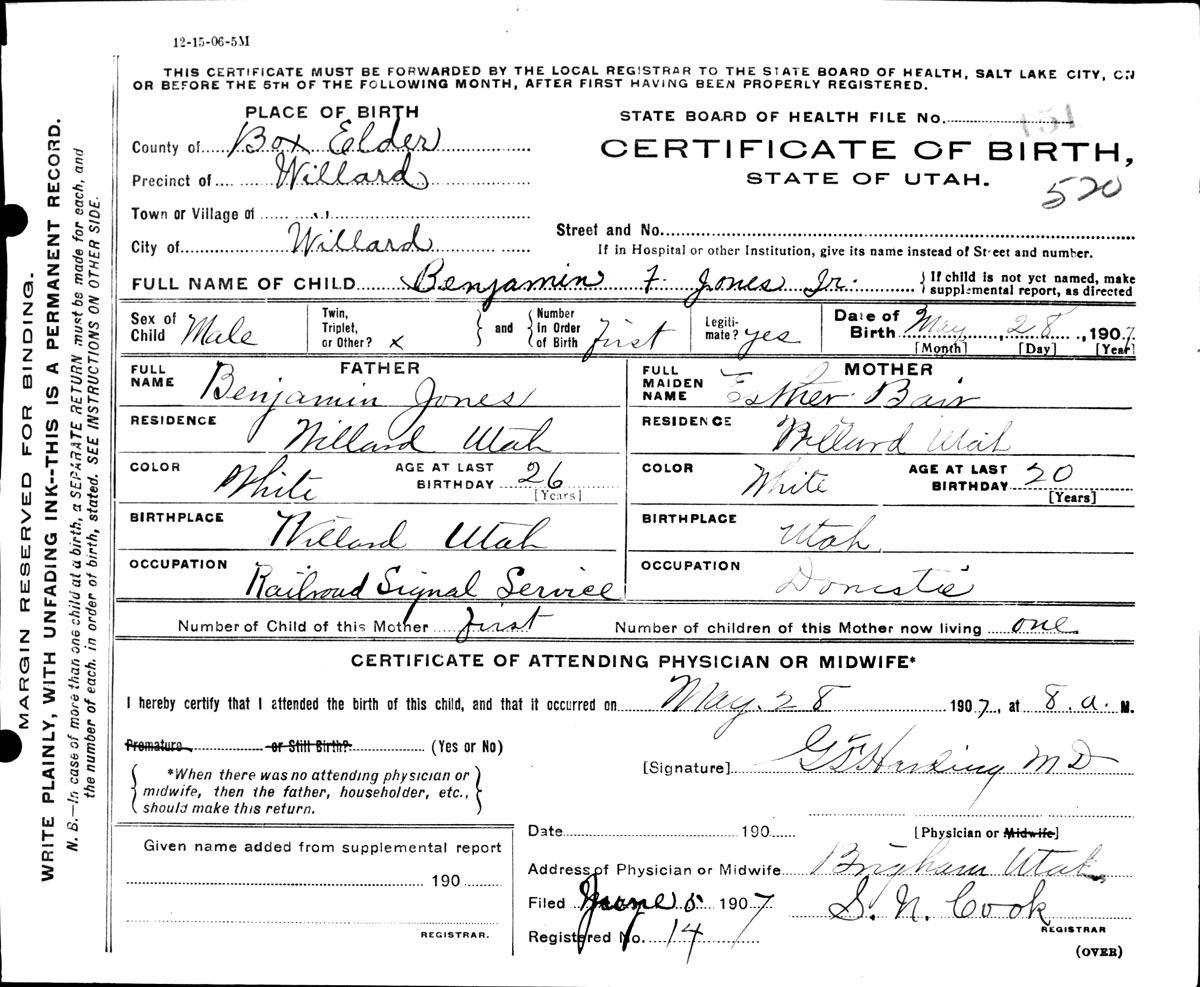 12-15-06-5M
THIS CERTIFICATE MUST BE FORWARDED BY THE LOCAL REGISTRAR TO THE STATE BOARD OF HEALTH, SALT LAKE CITY, ON
OR BEFORE THE 5TH OF THE FOLLOWING MONTH, AFTER FIRST HAVING BEEN PROPERLY REGISTERED.
PLACE OF BIRTH
County of Box Elder
Precinct of Willard
Town or Village of
City of Willard
STATE BOARD OF HEALTH FILE No. 151
CERTIFICATE OF BIRTH,
STATE OF UTAH.
520
Street and No.
If in Hospital or other Institution, give its name instead of Street and number.
FULL NAME OF CHILD Benjamin F. Jones Jr. { If child is not yet named, make
supplemental report, as directed
Sex of Child Male
Twin, Triplet, or Other? x
and
Number in Order of Birth first
Legitimate? yes
Date of Birth May 28, 1907
[Month] [Day] [Year]
FATHER
FULL NAME Benjamin Jones
RESIDENCE Willard Utah
COLOR White AGE AT LAST BIRTHDAY 26 [Years]
BIRTHPLACE Willard Utah
OCCUPATION Railroad Signal Service
MOTHER
FULL MAIDEN NAME Esther Bair
RESIDENCE Willard Utah
COLOR White AGE AT LAST BIRTHDAY 20 [Years]
BIRTHPLACE Utah
OCCUPATION Domestic
Number of Child of this Mother first Number of children of this Mother now living one
CERTIFICATE OF ATTENDING PHYSICIAN OR MIDWIFE*
I hereby certify that I attended the birth of this child, and that it occurred on May. 28 1907, at 8. a. M.
Premature or Still Birth? (Yes or No)
*When there was no attending physician or
midwife, then the father, householder, etc.,
should make this return.
[Signature] Harding MD
[Physician or Midwife]
Given name added from supplemental report
190
REGISTRAR.
Date 190
Address of Physician or Midwife Brigham Utah
Filed June 5 1907 S. N. Cook
REGISTRAR
Registered No. 14
(OVER)
MARGIN RESERVED FOR BINDING.
WRITE PLAINLY, WITH UNFADING INK--THIS IS A PERMANENT RECORD.
N. B.--In case of more than one child at a birth, a SEPARATE RETURN must be made for each, and
the number of each, in order of birth, stated. SEE INSTRUCTIONS ON OTHER SIDE.